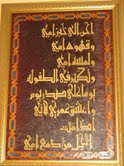 أحن إلى خبز أمي
وقهوة أمي
ولمسة أمي
وتكبر في الطفولة
يوما على صدر يوم
وأعشق عمري لأني
إذا مت
أخجل من دمع أمي